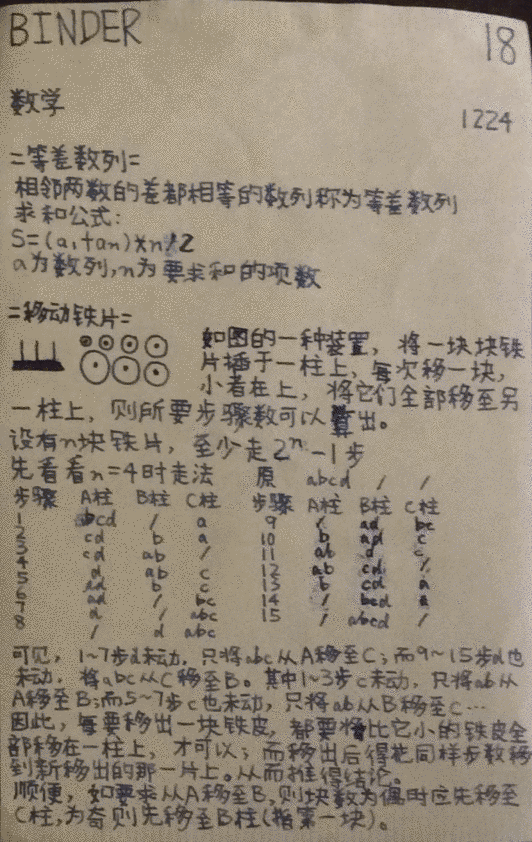 BINDER
18
数学
1224
=等差数列=
相邻两数的差都相等的数列称为等差数列
求和公式:
S=(a₁+an)*n/2
a为数列,n为要求和的项数
=移动铁片=
如图的一种装置，将一块块铁
片插于一柱上，每次移一块，
小者在上，将它们全部移至另
一柱上，则所要步骤数可以算出。
设有n块铁片，至少走2ⁿ-1步
先看看n=4时走法 原 abcd / /
步骤 A柱 B柱 C柱 步骤 A柱 B柱 C柱
1 bcd / a 9 / ad bc
2 cd b a 10 b ad c
3 cd ab / 11 ab d c
4 d ab c 12 ab cd /
5 ad b c 13 b cd a
6 ad / bc 14 / bcd a
7 d / abc 15 / abcd /
8 / d abc
可见，1~7步d未动，只将abc从A移至C；而9~15步d也
未动，将abc从C移至B。其中1~3步c未动，只将ab从
A移至B;而5~7步c也未动，只将ab从B移至C…
因此，每要移出一块铁皮，都要将比它小的铁皮全
部移在一柱上，才可以；而移出后得花同样步数移
到新移出的那一片上。从而推得结论。
顺便，如要求从A移至B,则块数为偶时应先移至
C柱,为奇则先移至B柱(指第一块)。